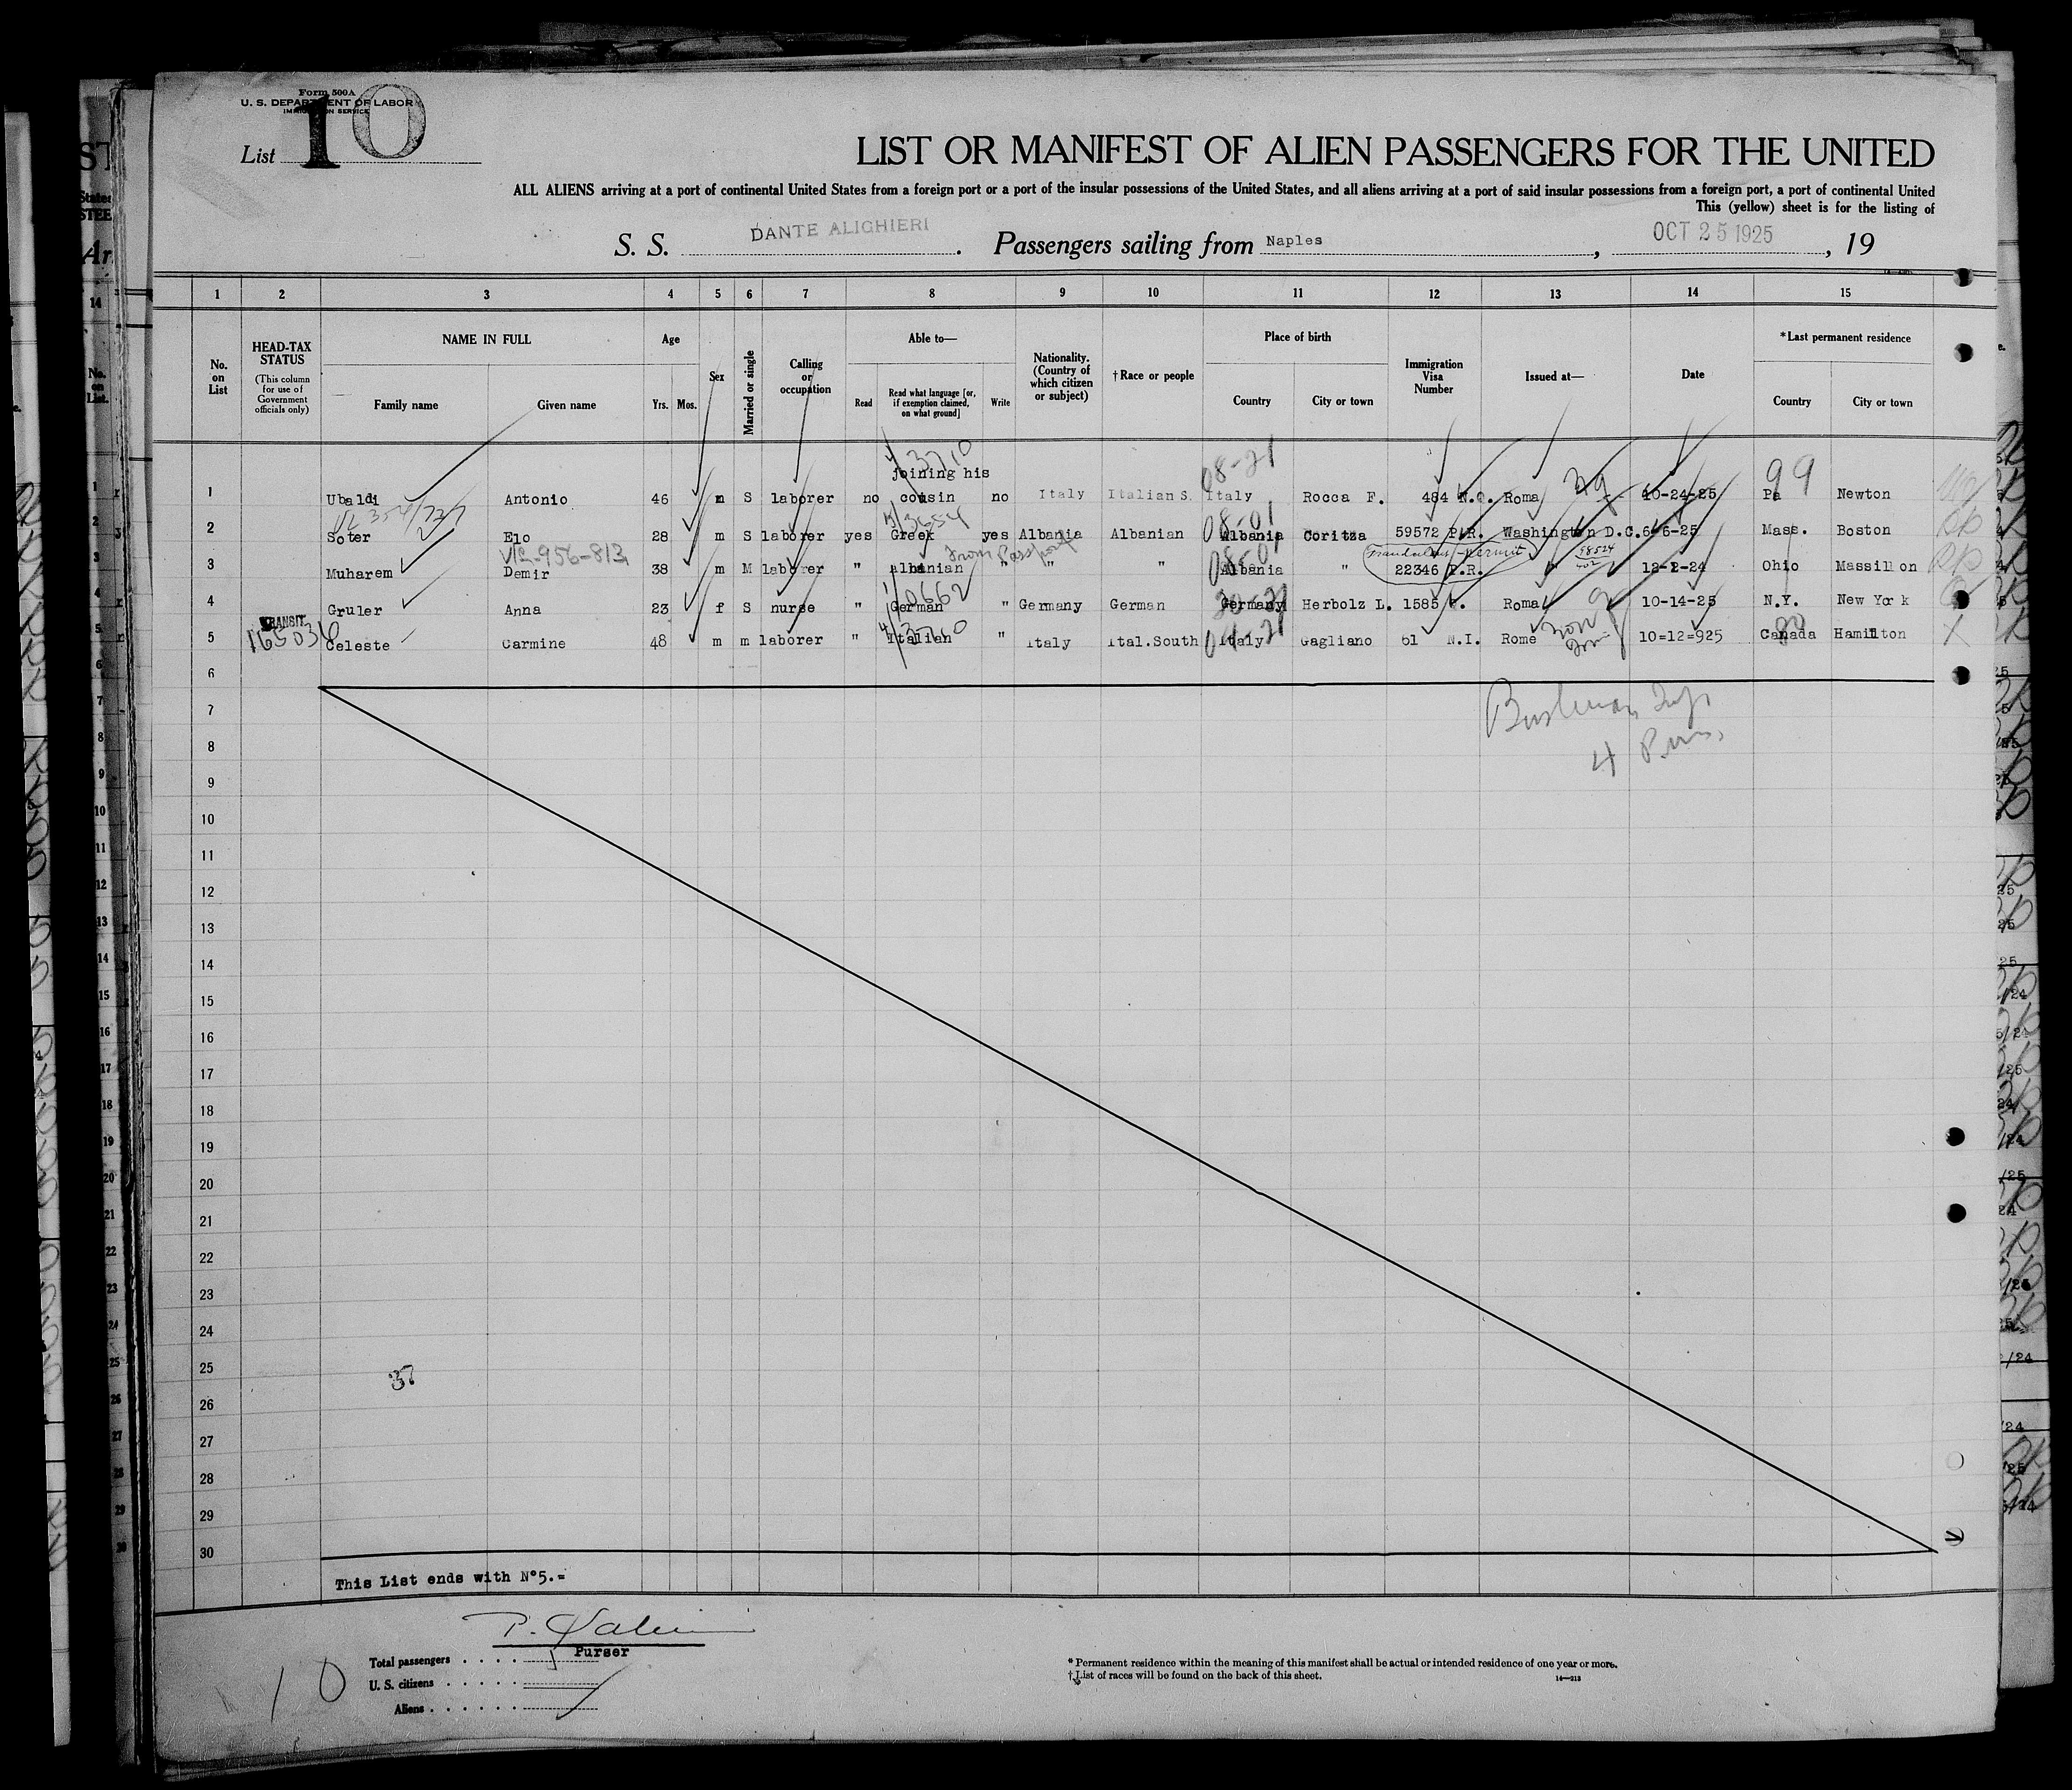 Form 500A
U. S. DEPARTMENT OF LABOR
IMMIGRATION SERVICE
List 10
LIST OR MANIFEST OF ALIEN PASSENGERS FOR THE UNITED
ALL ALIENS arriving at a port of continental United States from a foreign port or a port of the insular possessions of the United States, and all aliens arriving at a port of said insular possessions from a foreign port, a port of continental United
This (yellow) sheet is for the listing of
S. S. DANTE ALIGHIERI. Passengers sailing from Naples, OCT 25 1925, 19
1 2 3 4 5 6 7 8 9 10 11 12 13 14 15
No. on List
HEAD-TAX STATUS
(This column for use of Government officials only)
NAME IN FULL
Family name Given name
Age
Yrs. Mos.
Sex
Married or single
Calling or occupation
Able to—
Read
Read what language [or, if exemption claimed, on what ground]
Write
Nationality. (Country of which citizen or subject)
†Race or people
Place of birth
Country City or town
Immigration Visa Number
Issued at—
Date
*Last permanent residence
Country City or town
3710
joining his
08-21
99
1 Ubaldi Antonio 46 m S laborer no cousin no Italy Italian S. Italy Rocca F. 484 N.Q. Roma 10-24-25 Pa Newton
08-01
2 Soter Elo 28 m S laborer yes Greek yes Albania Albanian Albania Coritza 59572 P.R. Washington D.C. 6-6-25 Mass. Boston
VL-956-813
from Passport
08-01
Fraudulent permit
98524
3 Muharem Demir 38 m M laborer " albanian " " " Albania " 22346 P.R. " 12-2-24 Ohio Massillon
10662
4 Gruler Anna 23 f S nurse " German " Germany German Germany Herbolz L. 1585 Roma 10-14-25 N.Y. New York
TRANSIT
165036
3710
80
5 Celeste Carmine 48 m m laborer " Italian " Italy Ital.South Italy Gagliano 61 N.I. Rome 10=12=925 Canada Hamilton
6
7
4
8
9
10
11
12
13
14
15
16
17
18
19
20
21
22
23
24
25
37
26
27
28
29
30
This List ends with N°5.=
Purser
Total passengers . . . . 5
U. S. citizens . . . . .
Aliens . . . . . .
10
* Permanent residence within the meaning of this manifest shall be actual or intended residence of one year or more.
† List of races will be found on the back of this sheet.
14—213